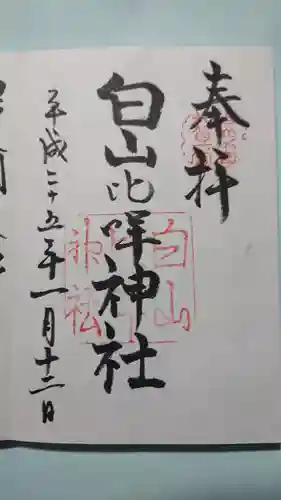 奉拝
白山比咩神社
平成二十五年一月十二日
白山
神社